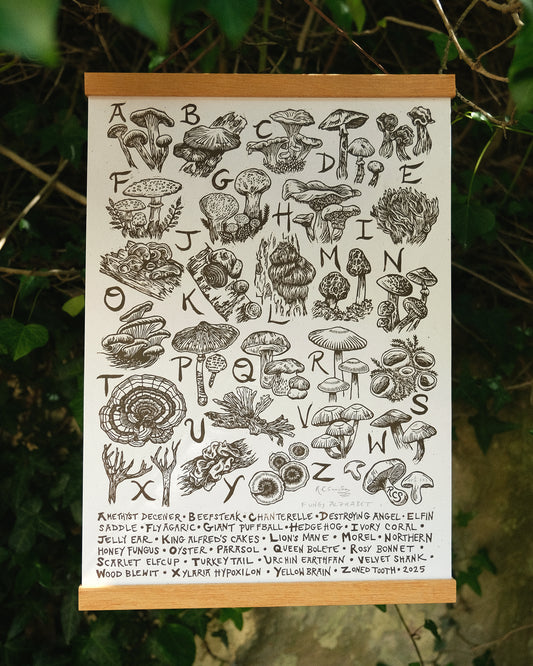 A B C D E
F G H I
J K L M N
O P Q R S
T U V W
X Y Z
FUNGI ALPHABET
AMETHYST DECEIVER • BEEFSTEAK • CHANTERELLE • DESTROYING ANGEL • ELFIN
SADDLE • FLY AGARIC • GIANT PUFFBALL • HEDGEHOG • IVORY CORAL •
JELLY EAR • KING ALFRED'S CAKES • LION'S MANE • MOREL • NORTHERN
HONEY FUNGUS • OYSTER • PARASOL • QUEEN BOLETE • ROSY BONNET •
SCARLET ELFCUP • TURKEY TAIL • URCHIN EARTHFAN • VELVET SHANK •
WOOD BLEWIT • XYLARIA HYPOXILON • YELLOW BRAIN • ZONED TOOTH • 2025